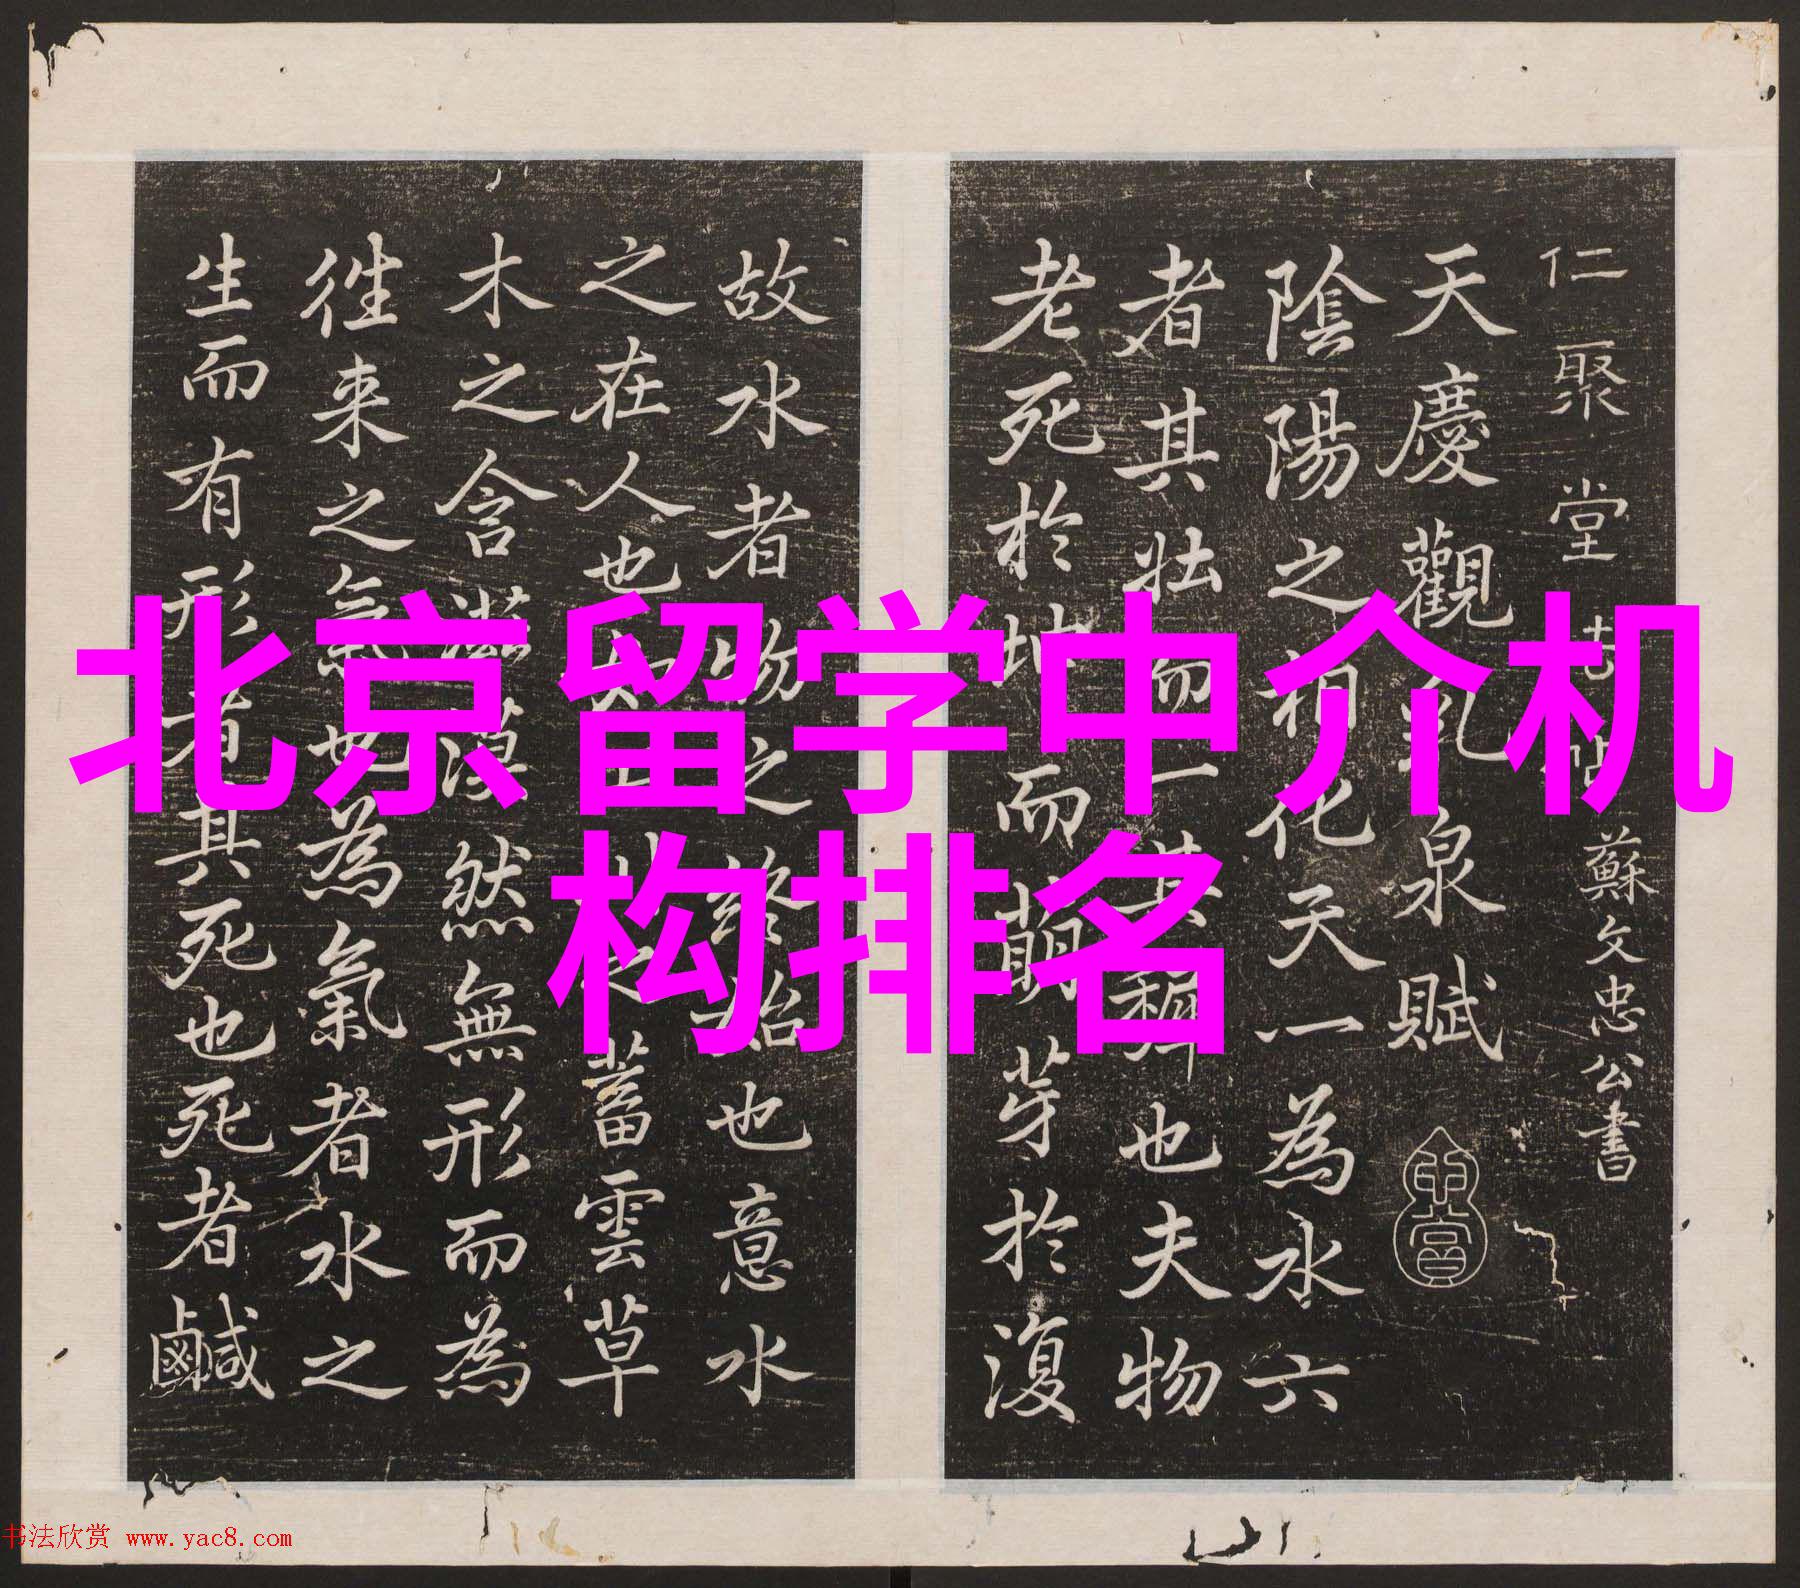 北京留学中介机
构排名
仁聚堂 帖 蘇文忠公書
天慶觀乳泉賦
陰陽之相化天一為水六
者其壯而一其穉也夫物
老死於坤而萌芽於復
故水者物之終始也意水
之在人也如山川之蓄雲草
木之含滋漠然無形而為
往来之氣也為氣者水之
生而有形者其死也死者鹹
书法欣赏 www.yac8.com